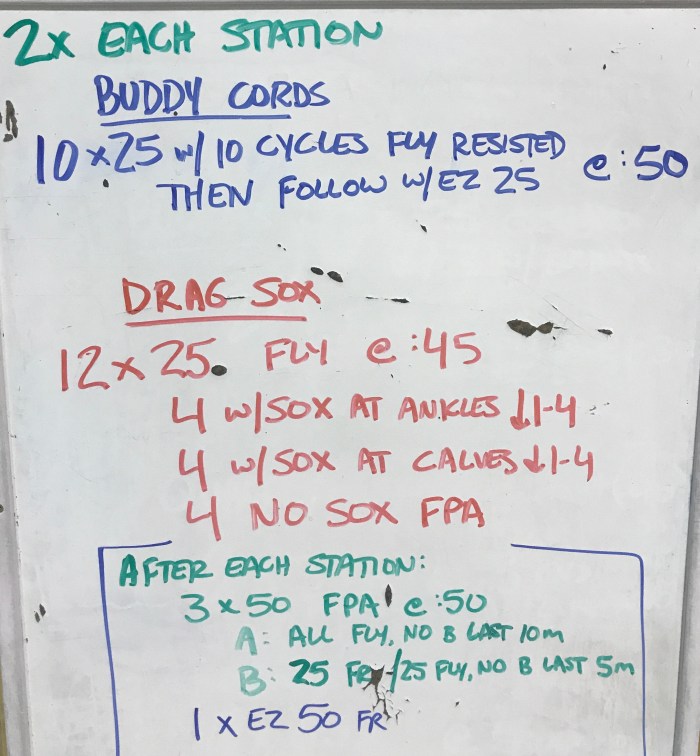 2x EACH STATION
BUDDY CORDS
10 x 25 w/ 10 CYCLES FLY RESISTED
THEN FOLLOW W/EZ 25 @ :50
DRAG SOX
12 x 25 FLY @ :45
4 W/SOX AT ANKLES ↓1-4
4 W/SOX AT CALVES ↓1-4
4 NO SOX FPA
AFTER EACH STATION:
3 x 50 FPA @ :50
A: ALL FLY, NO B LAST 10m
B: 25 FR/25 FLY, NO B LAST 5m
1 x EZ 50 FR